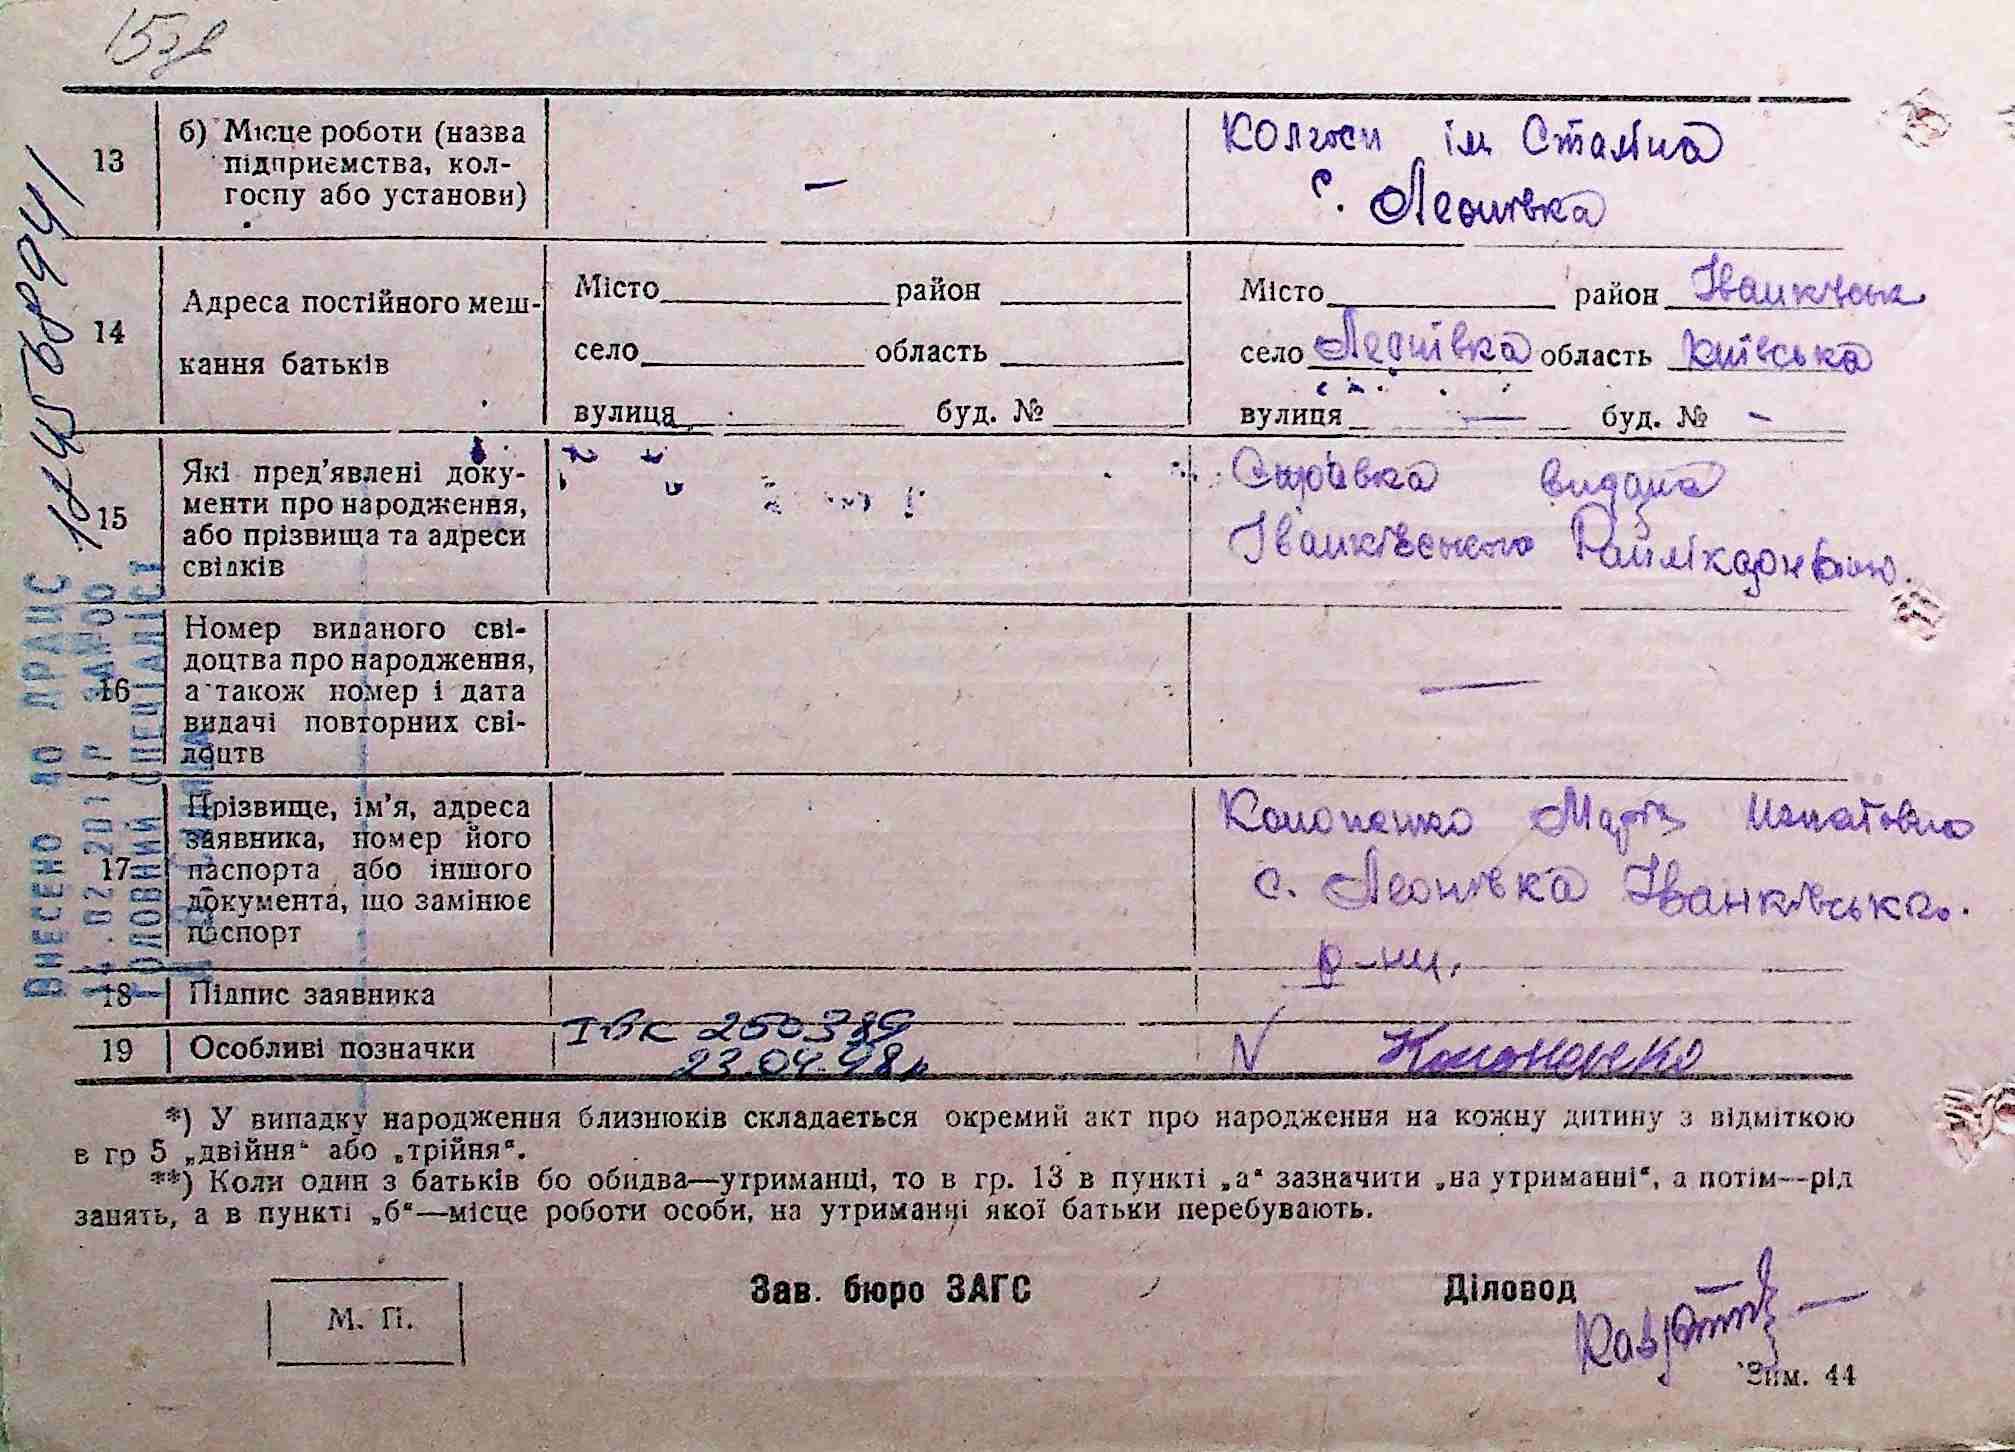 15зв
13 б) Місце роботи (назва
підприємства, кол-
госпу або установи)
—
Колгосп ім Сталіна
с. Леонівка
14 Адреса постійного меш-
кання батьків
Місто район
село область
вулиця буд. №
Місто район Іванківськ
село Леонівка область Київська
вулиця — буд. № -
15 Які пред'явлені доку-
менти про народження,
або прізвища та адреси
свідків
Справка видана
Іванківського Райлікарнею.
16 Номер виданого сві-
доцтва про народження,
а також номер і дата
видачі повторних сві-
доцтв
—
17 Прізвище, ім'я, адреса
заявника, номер його
паспорта або іншого
документа, що замінює
паспорт
Кононенко Марія Игнатовна
с. Леонівка Іванківська.
р-ну.
18 Підпис заявника
19 Особливі позначки
ІВК 250389
23.04.98р
V Кононенко
*) У випадку народження близнюків складається окремий акт про народження на кожну дитину з відміткою
в гр 5 „двійня“ або „трійня“.
**) Коли один з батьків бо обидва—утриманці, то в гр. 13 в пункті „а“ зазначити „на утриманні“, а потім—рід
занять, а в пункті „б“—місце роботи особи, на утриманні якої батьки перебувають.
М. П.
Зав. бюро ЗАГС
Діловод
Зим. 44
Внесено до ДРАЦС
ГОЛОВНИЙ СПЕЦІАЛІСТ